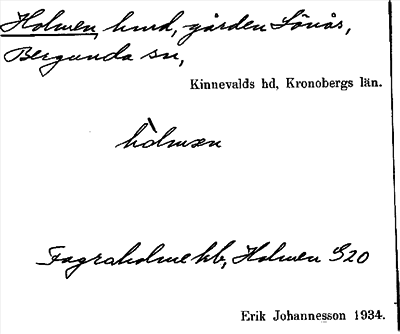 Holmen, hmd, gården Sönås,
Bergunda sn,
Kinnevalds hd, Kronobergs län.
hòlmən
Fagraholme hb, Holmen S20
Erik Johannesson 1934.